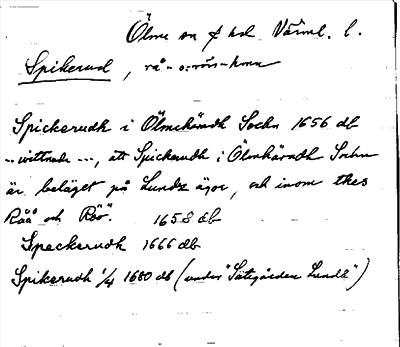 Ölme sn o hd Värml. l.
Spikerud, rå- o. rös-hmn
Spickerudh i Ölmehäradh Sochn 1656 db
--wittnade ---, att Spickerudh i Ölmhäradh Sochn
är beläget på Lundz ägor, och inom thes
Råå och Röö. 1658 db
Speckerudh 1666 db
Spikerudh 1/4 1680 db (under "Sätegården Lundh")